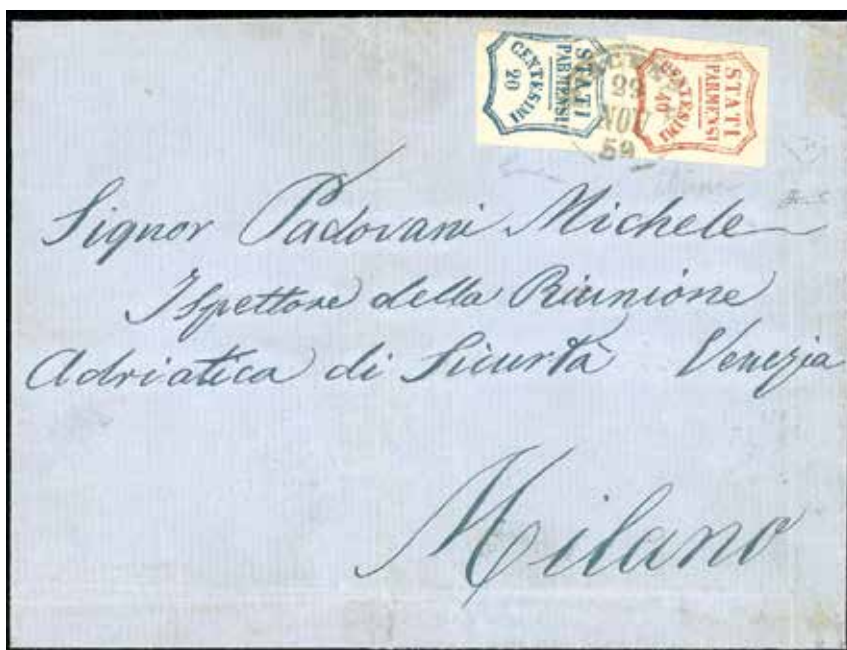 STATI
PARMENSI
CENTESIMI
20
STATI
PARMENSI
CENTESIMI
40
22
NOV
59
Signor Padovani Michele
Ispettore della Riunione
Adriatica di Sicurtà Venezia
Milano